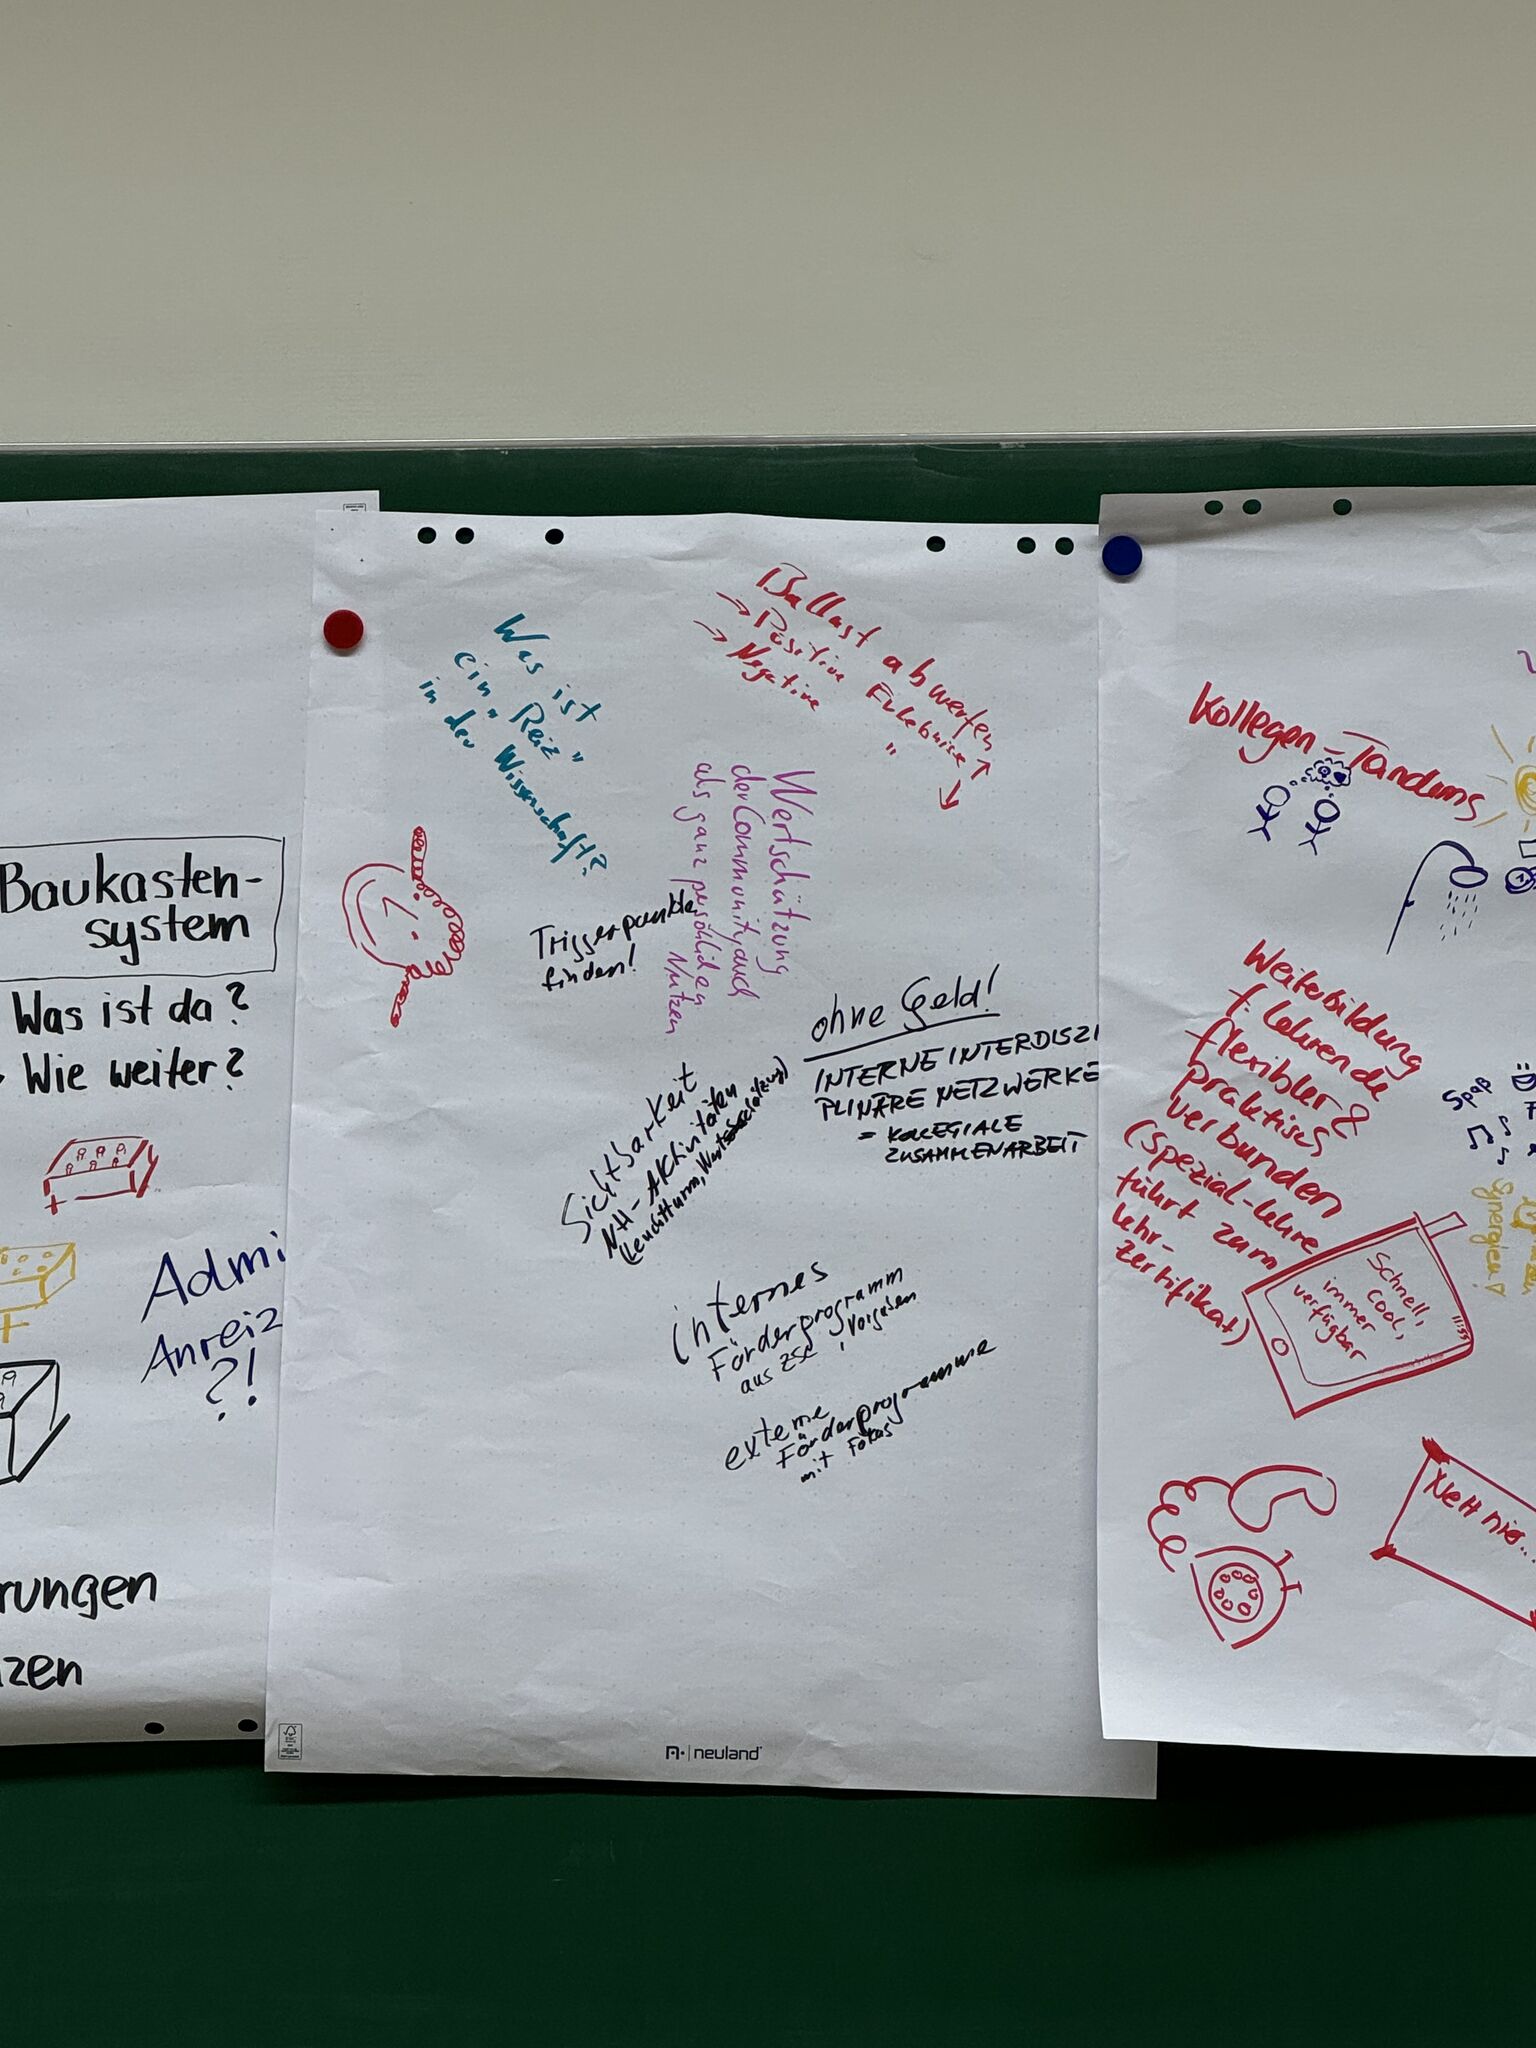 Baukasten-
system
Was ist da?
Wie weiter?
Admi
Anreiz
?!
rungen
zen
Was ist
ein "Reiz"
in der Wissenschaft?
Ballast abwerfen
→ Positive Erlebnisse ↑
→ Negative " ↓
Wertschätzung
der Community auch
als ganz persönlichen
Nutzen
Triggerpunkte
finden!
ohne Geld!
INTERNE INTERDISZI
PLINÄRE NETZWERKE
= KOLLEGIALE
ZUSAMMENARBEIT
Sichtbarkeit
NH-Aktivitäten
(Leuchtturm, Wertschätzung)
internes
Förderprogramm
aus ZSE, Vorgaben
externe
Förderprogramme
mit Fokus
neuland
Kollegen-Tandems
Weiterbildung
f. Lehrende
flexibler &
praktisch
verbunden
(Spezial-Lehre
führt zum
Lehr-
zertifikat)
Schnell,
Cool,
immer
verfügbar
Spap
Synergien!
Nett hier...